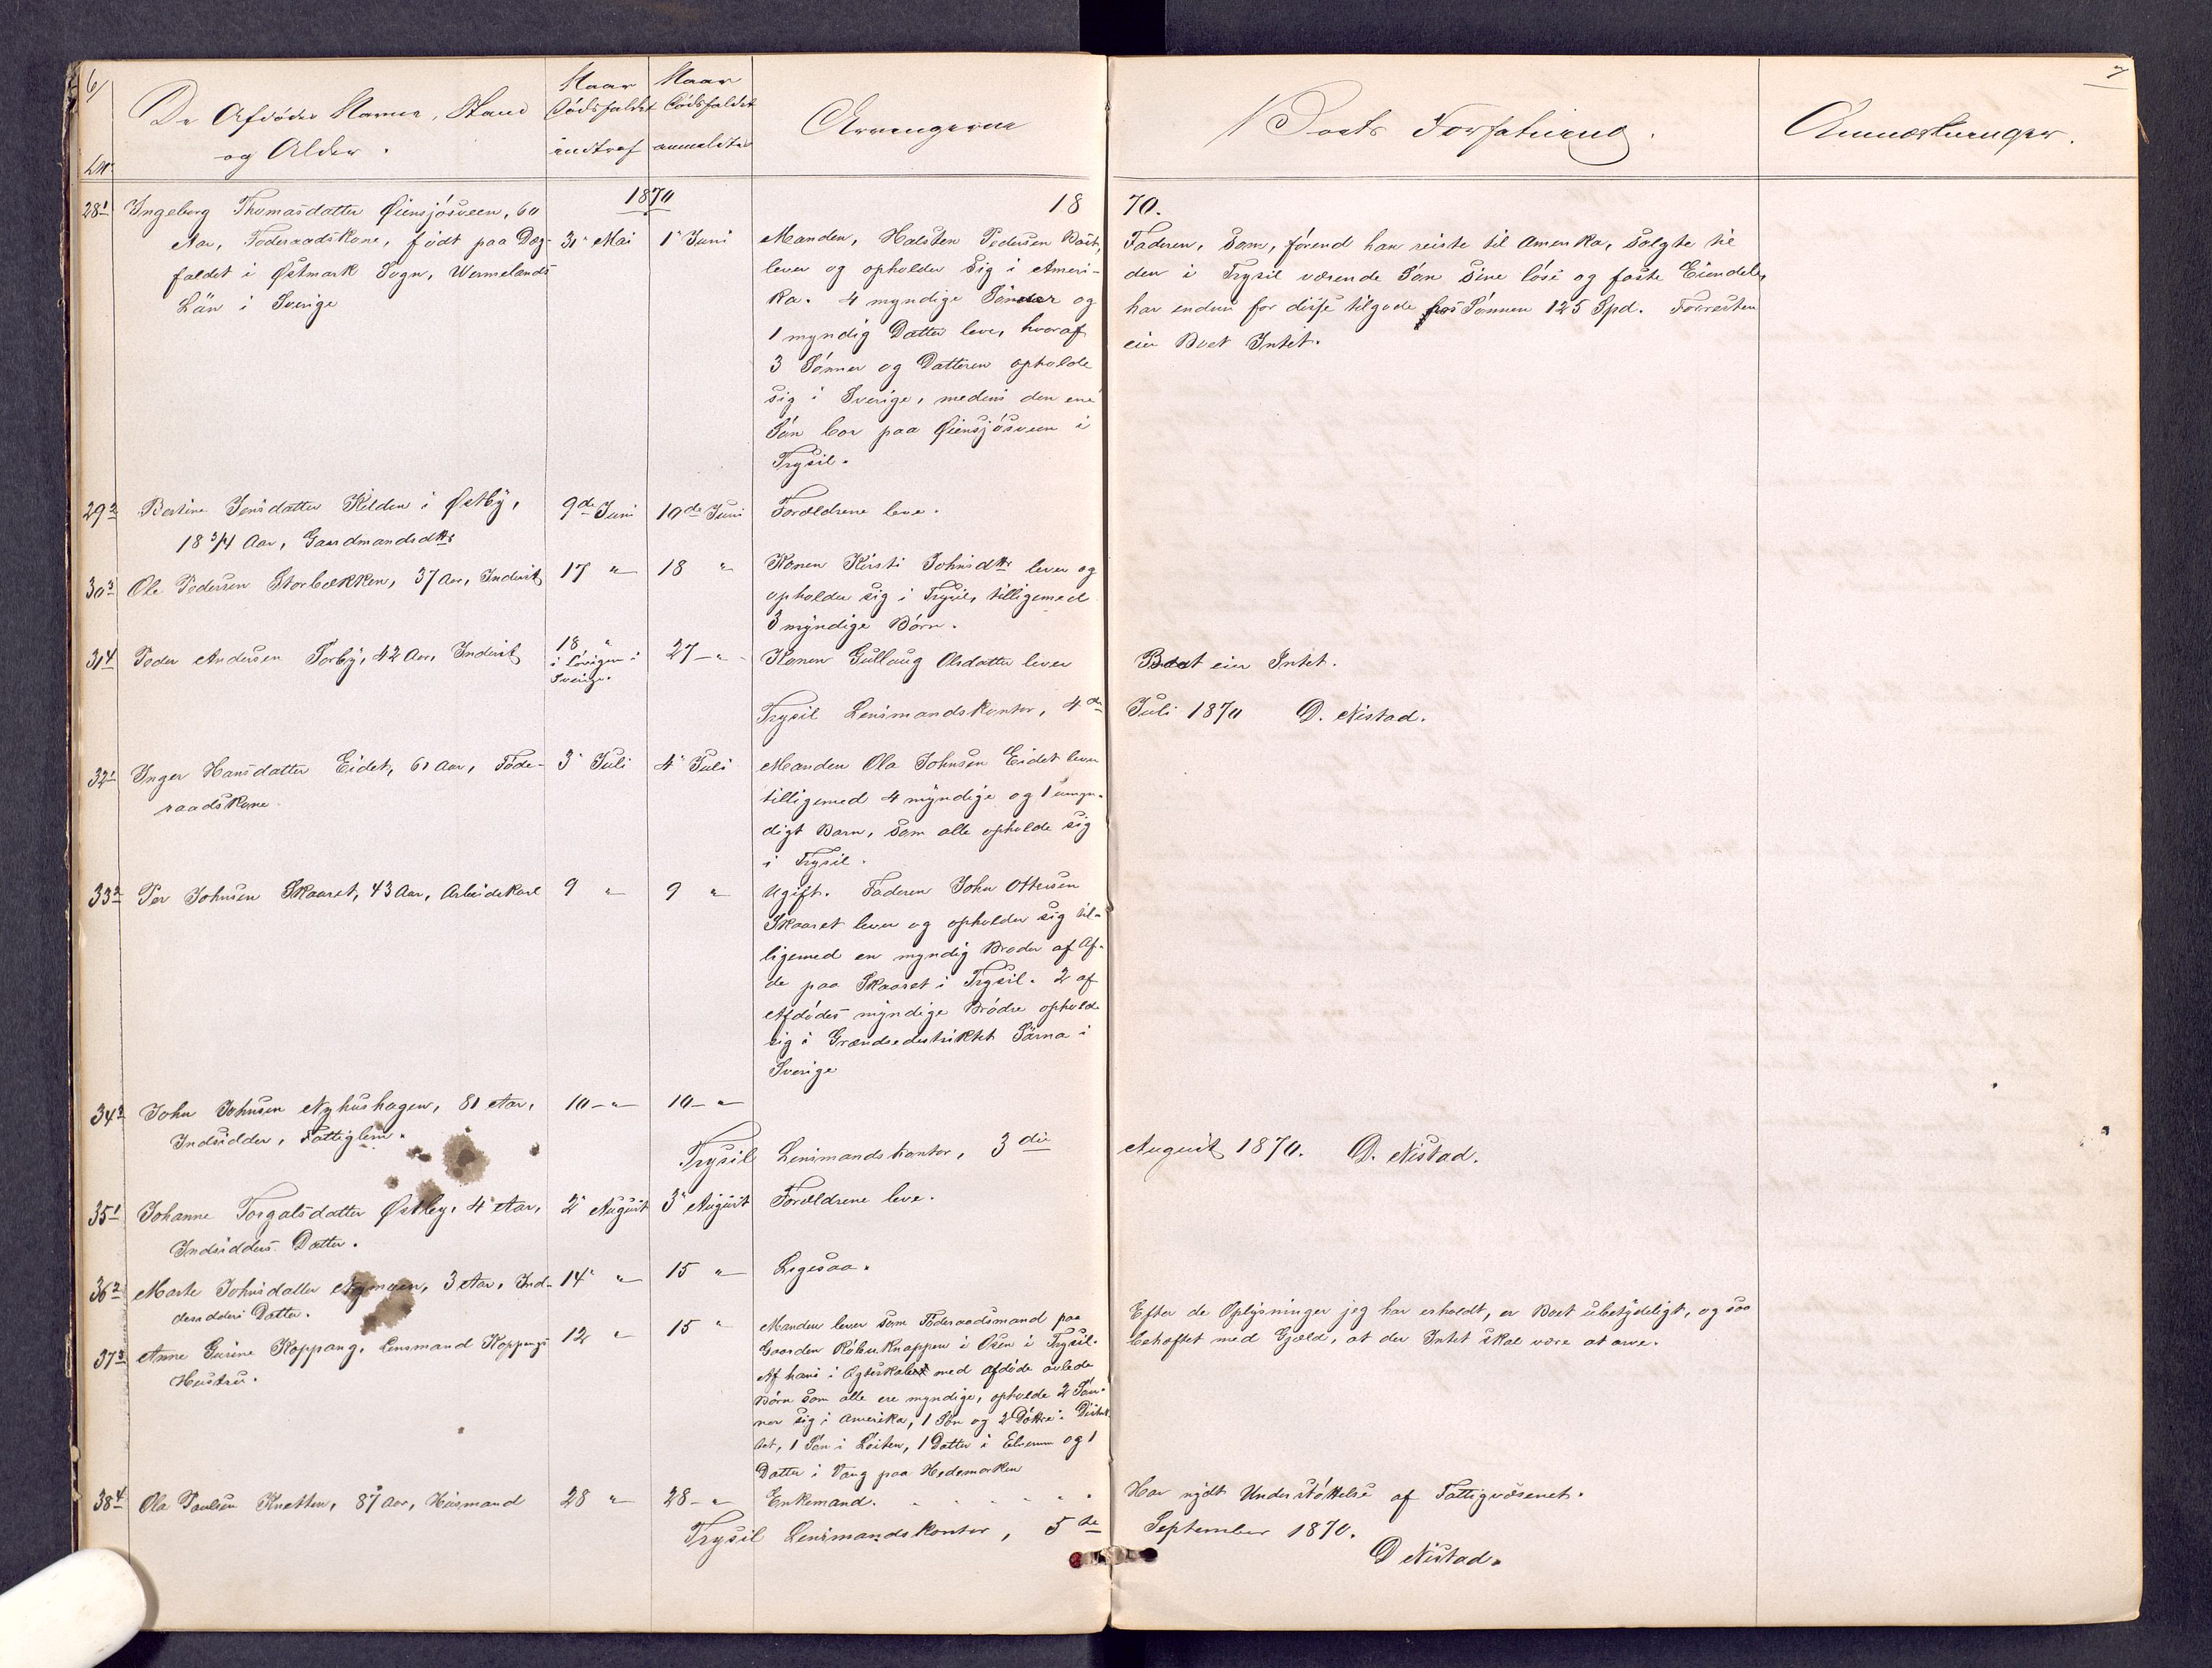 6
De Afdødes Navne, Stand
og Alder.
Naar
Dødsfaldet
indtraf
Naar
Dødsfaldet
anmeldtes
Arvingerne
Boets Forfatning.
Anmærkninger.
7
Nr.
1870
18
70.
28 1 Ingeborg Thomasdatter Øiensjøsveen, 60
Aar, Føderaadskone, født paa Dag-
faldet i Østmark Sogn, Wermelands
Län i Sverige
31' Mai
1' Juni
Manden, Halsten Pedersen
lever og opholder sig i Ameri-
ka. 4 myndige Sønner og
1 myndig Datter lever, hvoraf
3 Sønner og Datteren opholde
sig i Sverige, medens den ene
Søn bor paa Øiensjøsveen i
Trysil.
Faderen, som, førend han reiste til Amerika, solgte til
den i Trysil værende Søn sine løse og faste Eiendele,
har endnu for disse tilgode hos Sønnen 125 Spd. Forresten
eier Boet Intet.
29 2 Bertine Jonsdatter Kilden i Østby,
18 3/4 Aar, Gaardmandsdtr
9de Juni
10de Juni
Forældrene leve.
30 3 Ole Pedersen Storbækken, 37 Aar, Inderst
17 "
18 "
Konen Kirsti Johnsdtr lever og
opholder sig i Trysil, tilligemed
3 myndige Børn.
31 4 Peder Andersen Torby, 42 Aar, Inderst
18 "
i
Sverige.
27 - " -
Konen Gullaug Olsdatter lever
Boet eier Intet.
Trysil Lensmandskontor, 4de
Juli 1870 D. Nistad.
32 1 Inger Hansdatter Eidet, 61 Aar, Føde-
raadskone
3' Juli
4' Juli
Manden Ola Johnsen Eidet lever
tilligemed 4 myndige og 1 umyn-
digt Barn, som alle opholde sig
i Trysil.
33 2 Per Johnsen Skaaret, 43 Aar, Arbeidskarl
9 "
9 "
Ugift. Faderen John Ottersen
Skaaret lever og opholder sig til-
ligemed en myndig Broder af Af-
de paa Skaaret i Trysil. 2 af
Afdødes myndige Brødre opholde
sig i Grændsedistriktet Särna i
Sverige
34 3 John Johnsen Nyhushagen, 81 Aar,
Indsidder, Fattiglem.
10 - "
10 - "
Trysil Lensmandskontor, 3die
August 1870. D. Nistad.
35 1 Johanne Torgalsdatter Østby, 4 Aar,
Indsidders Datter.
2' August
3' August
Forældrene leve.
36 2 Marte Johnsdatter Nymoen, 3 Aar, Ind-
sidders Datter.
14' "
15 "
Ligesaa.
37 3 Anne Gurine Koppang, Lensmand Koppangs
Hustru.
12 "
15 "
Manden lever som Føderaadsmand paa
Gaarden Røbuknappen i Osen i Trysil.
Af hans i Ægteskabet med afdøde avlede
Børn som alle ere myndige, opholde 2 Søn-
ner sig i Amerika, 1 Søn og 2 Døttre i Distrik-
tet, 1 Søn i Løiten, 1 Datter i Elverum og 1
Datter i Vang paa Hedemarken
Efter de Oplysninger jeg har erholdt, er Boet ubetydeligt, og saa
behæftet med Gjæld, at der Intet skal være at arve.
38 4 Ola Paulsen Knetten, 87 Aar, Husmand
28 "
28 - "
Enkemand.
Har nydt Understøttelse af Fattigvæsenet.
Trysil Lensmandskontor, 5te
September 1870.
D Nistad.